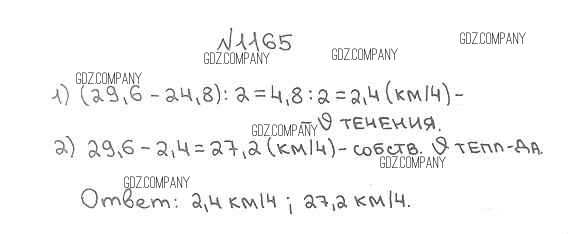 №1165
GDZ.COMPANY GDZ.COMPANY GDZ.COMPANY
GDZ.COMPANY
1) (29,6 - 24,8) : 2 = 4,8 : 2 = 2,4 (км/ч) -
GDZ.COMPANY
- υ течения.
2) 29,6 - 2,4 = 27,2 (км/ч) - собств. υ тепл-да.
GDZ.COMPANY
GDZ.COMPANY
Ответ: 2,4 км/ч ; 27,2 км/ч.